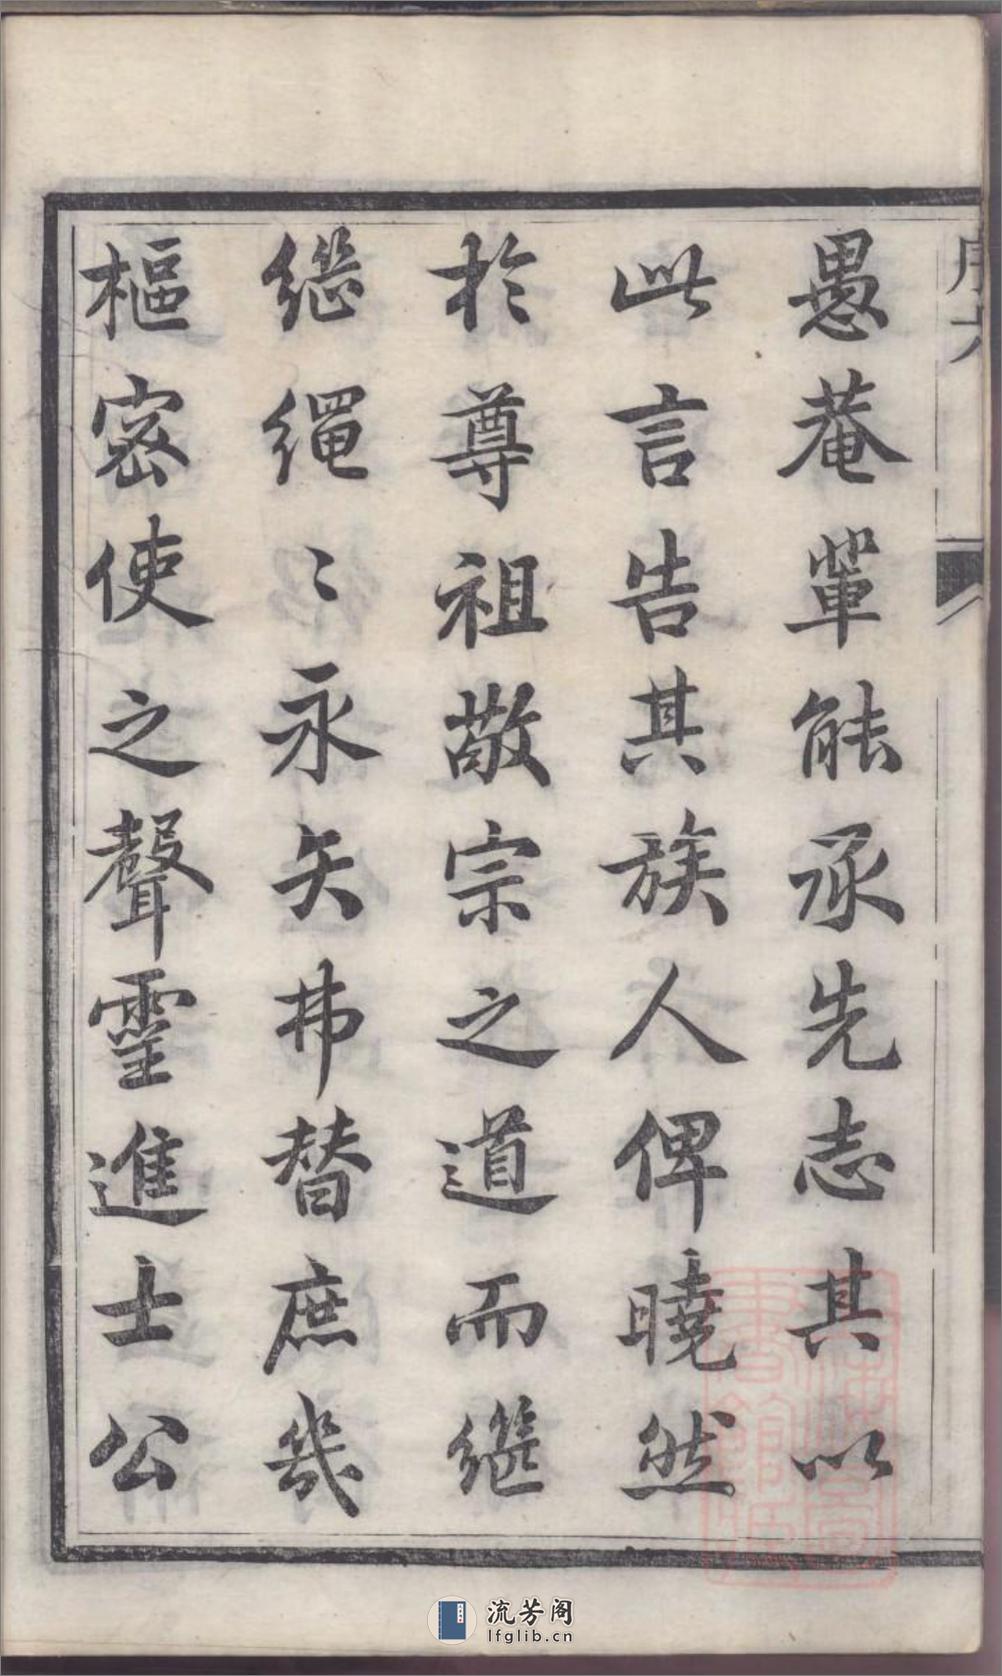 愚菴軰能承先志其以
此言告其族人俾曉然
於尊祖敬宗之道而継
継繩〻永矢弗替庶幾
樞密使之聲靈進士公
流芳阁
lfglib.cn